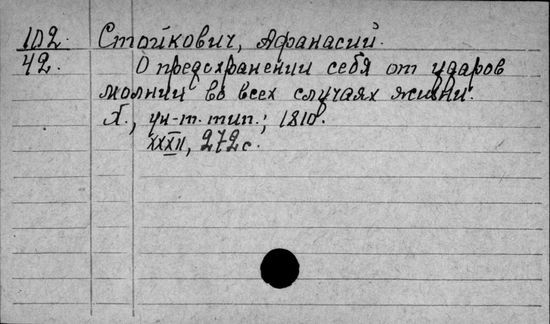 102. Стойкович, Афанасий.
42. О предохранении себя от ударов
молнии во всех случаях жизни.
Х., ун-т. тип., 1810.
XXXII, 272 с.